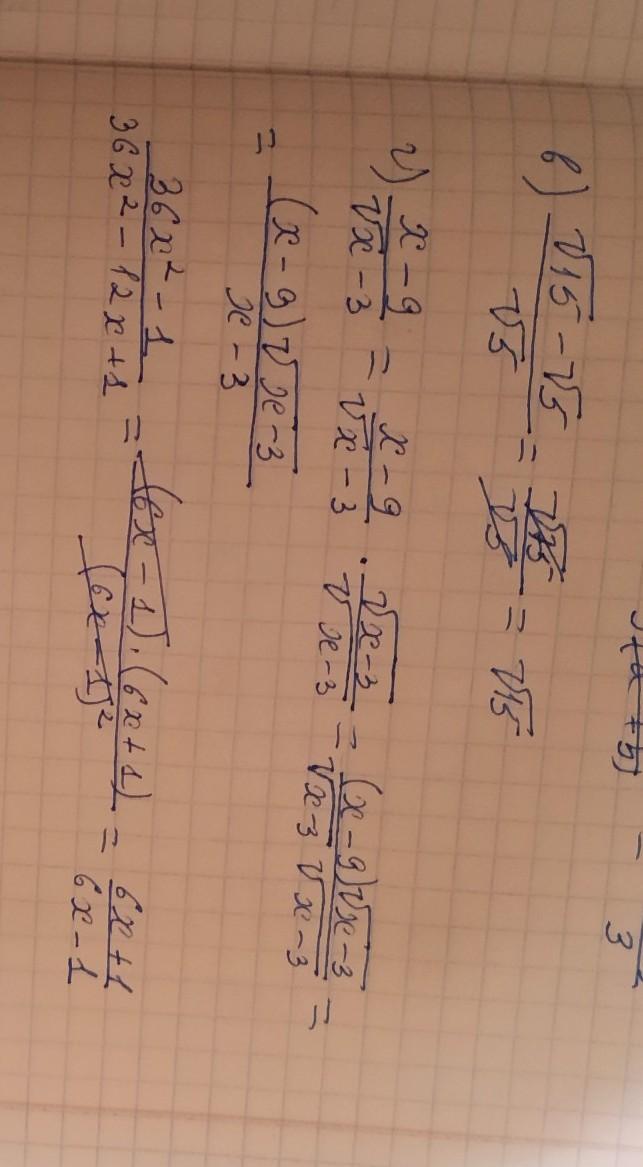 в) (√15 - √5)/√5 = √15/√5 = √15
г) (x - 9)/(√x - 3) = (x - 9)/(√x - 3) · √(x-3)/√(x-3) = ((x - 9)√(x-3))/(√(x-3) √(x-3)) =
= ((x - 9)√(x-3))/(x - 3)
(36x² - 1)/(36x² - 12x + 1) = ((6x - 1)·(6x + 1))/(6x - 1)² = (6x + 1)/(6x - 1)